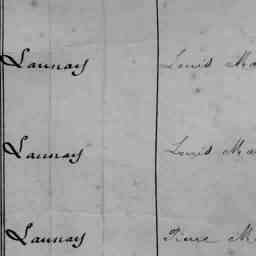 Launay Louis Ma
Launay Louis Ma
Launay Pierre M